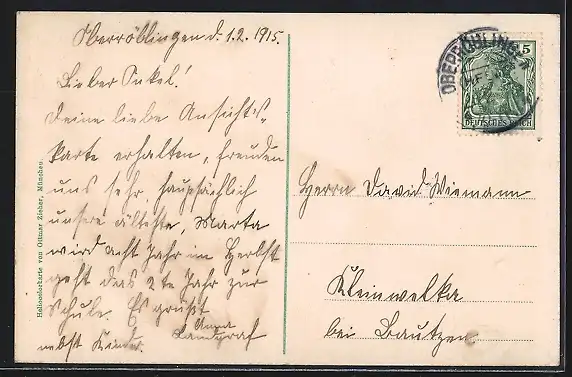 Oberröblingen d. 1.2. 1915.
Lieber Onkel!
Deine liebe Ansichts-
karte erhalten, freuden
uns sehr, haupsächlich
unsre älteste, Marta
wird acht Jahr im Herbst
geht das 2te Jahr zur
Schule. Es grüßt
Anna
nebst Kinder. Landgraf
Heliocolorkarte von Ottmar Zieher, München.
5
DEUTSCHES REICH
Herrn David Wiemann
Kleinwelka
bei Bautzen.